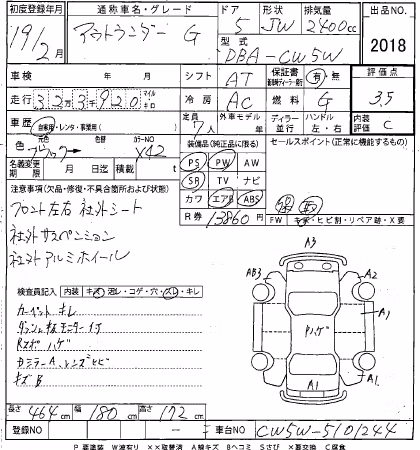 初度登録年月 通称車名・グレード ドア 形状 排気量 出品NO.
19/2月 アウトランダー G 5 JW 2400cc
型式 DBA-CW5W 2018
車検 年 月 シフト AT 保証書 有・無 評価点
走行 32万3千920 マイル キロ 冷房 AC 燃料 G 3.5
車歴 自家用・レンタ・事業用 定員 7人 外車モデル 年 ディーラー 並行 ハンドル 左・右 内装評価 C
色 元色 ブラック 色替 カラーNO X42 装備品(純正品に限る) セールスポイント(正常に機能するもの)
名義変更期限 月 日迄 積載 t PS PW AW
注意事項(欠品・修復・不具合箇所および状態) SR TV ナビ
フロント左右社外シート カワ エアB ABS
社外サスペンション R券 13860円 FW キズ・ヒビ割・リペア跡・X要
社外アルミホイール
A3
検査員記入 内装 キズ・汚レ・コゲ・穴・スレ・キレ AB3 A2
カーペットキレ
ダッシュ板モニター付 A1
Rスポハゲ Pハゲ
カミラーA、レンズヒビ
キズB A1 A1
長さ 464cm 幅 180cm 高さ 172cm
登録NO 車台NO CW5W-5101244
P要塗装 W波有り ××取替済 A線キズ Bヘコミ Sさび ×要交換 C腐食